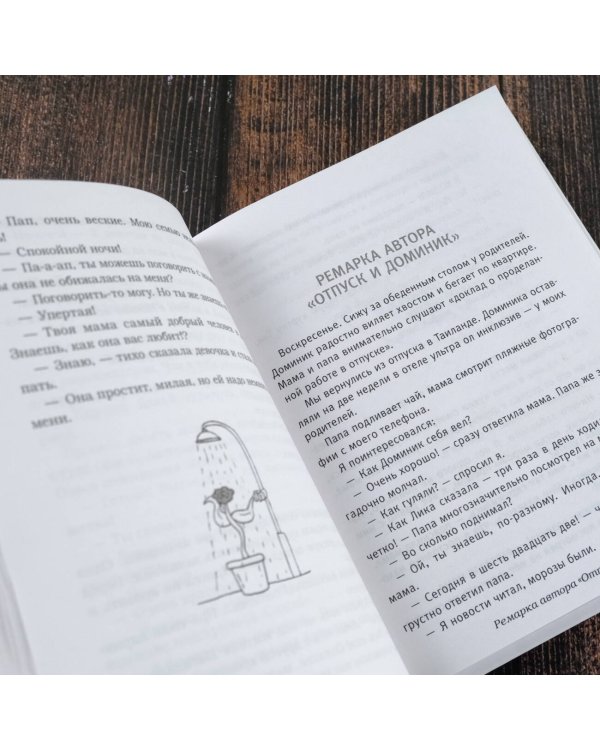 Пап, очень веские. Мою семью
— Спокойной ночи!
— Па-а-ап, ты можешь поговорить с
ы она не обижалась на меня?
— Поговорить-то могу. Но ты же знаешь
— Упертая!
— Твоя мама самый добрый человек
Знаешь, как она вас любит!?
— Знаю, — тихо сказала девочка и ста
пать.
— Она простит, милая, но ей надо
мени.
РЕМАРКА АВТОРА
«ОТПУСК И ДОМИНИК»
Воскресенье. Сижу за обеденным столом у родителей.
Доминик радостно виляет хвостом и бегает по квартире.
Мама и папа внимательно слушают «доклад о проделан-
ной работе в отпуске».
Мы вернулись из отпуска в Таиланде. Доминика остав-
ляли на две недели в отеле ультра ол инклюзив — у моих
родителей.
Папа подливает чай, мама смотрит пляжные фотогра-
фии с моего телефона.
Я поинтересовался:
— Как Доминик себя вел?
— Очень хорошо! — сразу ответила мама. Папа же за-
гадочно молчал.
— Как гуляли? — спросил я.
— Как Лика сказала — три раза в день ходи
четко! — Папа многозначительно посмотрел на м
— Во сколько поднимал?
— Ой, ты знаешь, по-разному. Иногда,
мама.
— Сегодня в шесть двадцать две! — ч
грустно ответил папа.
— Я новости читал, морозы были.
Ремарка автора «Отп